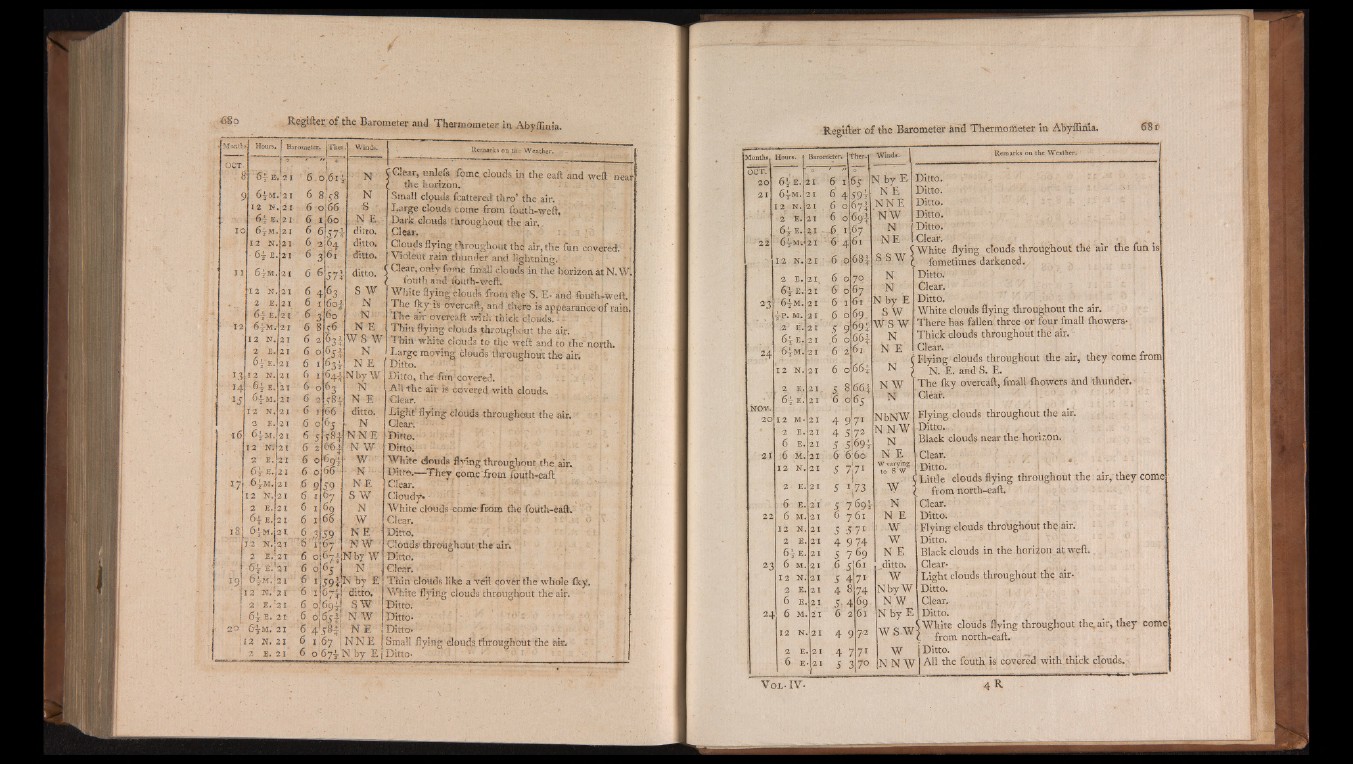 680 Regiſter of the Barometer and Thermometer in Abyſſinia.
Months. Hours. Barometer. Ther. Winds. Remarks on the Weather.
OCT.
8 6½ E. 21 6 0 61½ N Clear, unleſs ſome clouds in the eaſt and weſt near
the horizon.
9 6½ M. 21 6 8 58 N Small clouds ſcattered thro' the air.
12 N. 21 6 0 66 S Large clouds come from ſouth-weſt,
6½ E. 21 6 1 60 N E Dark clouds throughout the air.
10 6½ M. 21 6 6 57½ ditto. Clear.
12 N. 21 6 2 64 ditto. Clouds flying throughout the air, the ſun covered.
6½ E. 21 6 3 61 ditto. Violent rain thunder and lightning.
11 6½ M. 21 6 6 57½ ditto. Clear, only ſome ſmall clouds in the horizon at N.W.
ſouth and ſouth-weſt.
12 N. 21 6 4 63 S W White flying clouds from the S. E. and ſouth-weſt.
2 E. 21 6 1 60½ N The ſky is overcaſt, and there is appearance of rain.
6½ E. 21 6 3 60 N The air overcaſt with thick clouds.
12 6½ M. 21 6 8 56 N E Thin flying clouds throughout the air.
12 N. 21 6 2 63½ W S W Thin white clouds to the weſt and to the north.
2 E. 21 6 0 65½ N Large moving clouds throughout the air.
6½ E. 21 6 1 63½ N E Ditto.
13 12 N. 21 6 1 64½ N by W Ditto, the ſun covered.
14 6½ E. 21 6 0 63 N All the air is covered with clouds.
15 6½ M. 21 6 2 58½ N E Clear.
12 N. 21 6 1 66 ditto. Light flying clouds throughout the air.
2 E. 21 6 0 65 N Clear.
16 6½ M. 21 6 5 58½ N N E Ditto.
12 N. 21 6 2 66½ N W Ditto.
2 E. 21 6 0 69½ W White clouds flying throughout the air.
6½ E. 21 6 0 66 N Ditto.—They come from ſouth-eaſt
17 6½ M. 21 6 9 59 N E Clear.
12 N. 21 6 1 67 S W Cloudy.
2 E. 21 6 1 69 N White clouds come from the ſouth-eaſt.
6½ E. 21 6 1 66 W Clear.
18 6½ M. 21 6 3 59 N E Ditto.
12 N. 21 6 1 67 N W Clouds throughout the air.
2 E. 21 6 0 67½ N by W Ditto.
6½ E. 21 6 0 65 N Clear.
19 6½ M. 21 6 1 59½ N by E Thin clouds like a veil cover the whole ſky.
12 N. 21 6 1 67½ ditto. White flying clouds throughout the air.
2 E. 21 6 0 69½ S W Ditto.
6½ E. 21 6 0 65½ N W Ditto.
20 6½ M. 21 6 4 58½ N E Ditto.
12 N. 21 6 1 67 N N E Small flying clouds throughout the air.
2 E. 21 6 0 67½ N by E Ditto.
Regiſter of the Barometer and Thermometer in Abyſſinia. 681
Months. Hours. Barometer. Ther. Winds. Remarks on the Weather.
OCT.
20 6½ E. 21 6 1 65 N by E Ditto.
21 6½ M. 21 6 4 59½ N E Ditto.
12 N. 21 6 0 67½ N N E Ditto.
2 E. 21 6 0 69½ N W Ditto.
6½ E. 21 6 1 67 N Ditto.
22 6½ M. 21 6 4 61 N E Clear.
12 N. 21 6 0 68½ S S W White flying clouds throughout the air the ſun is
ſometimes darkened.
2 E. 21 6 0 70 N Ditto.
6½ E. 21 6 0 67 N Clear.
23 6½ M. 21 6 1 61 N by E Ditto.
½ P. M. 21 6 0 69 S W White clouds flying throughout the air.
2 E. 21 5 9 69½ W S W There has fallen three or four ſmall ſhowers.
6½ E. 21 6 0 66½ N Thick clouds throughout the air.
24 6½ M. 21 6 2 61 N E Clear.
12 N. 21 6 0 66½ N Flying clouds throughout the air, they come from
N. E. and S. E.
2 E. 21 5 8 66½ N W The ſky overcaſt, ſmall ſhowers and thunder.
6½ E. 21 6 0 65 N Clear.
NOV.
20 12 M. 21 4 9 71 NbNW Flying clouds throughout the air.
2 E. 21 4 5 72 N N W Ditto.
6 E. 21 5 5 69½ N Black clouds near the horizon.
21 6 M. 21 6 6 60 N E Clear.
12 N. 21 5 7 71 W varying to S W Ditto.
2 E. 21 5 1 73 W Little clouds flying throughout the air, they come
from north-eaſt.
6 E. 21 5 7 69½ N Clear.
22 6 M. 21 6 7 61 N E Ditto.
12 N. 21 5 5 71 W Flying clouds throughout the air.
2 E. 21 4 9 74 W Ditto.
6½ E. 21 5 7 69 N E Black clouds in the horizon at weſt.
23 6 M. 21 6 5 61 ditto. Clear.
12 N. 21 5 4 71 W Light clouds throughout the air.
2 E. 21 4 8 74 N by W Ditto.
6 E. 21 5 4 69 N W Clear.
24 6 M. 21 6 2 61 N by E Ditto.
12 N. 21 4 9 72 W S W White clouds flying throughout the air, they come
from north-eaſt.
2 E. 21 4 7 71 W Ditto.
6 E. 21 5 3 70 N N W All the ſouth is covered with thick clouds.
VOL. IV. 4 R